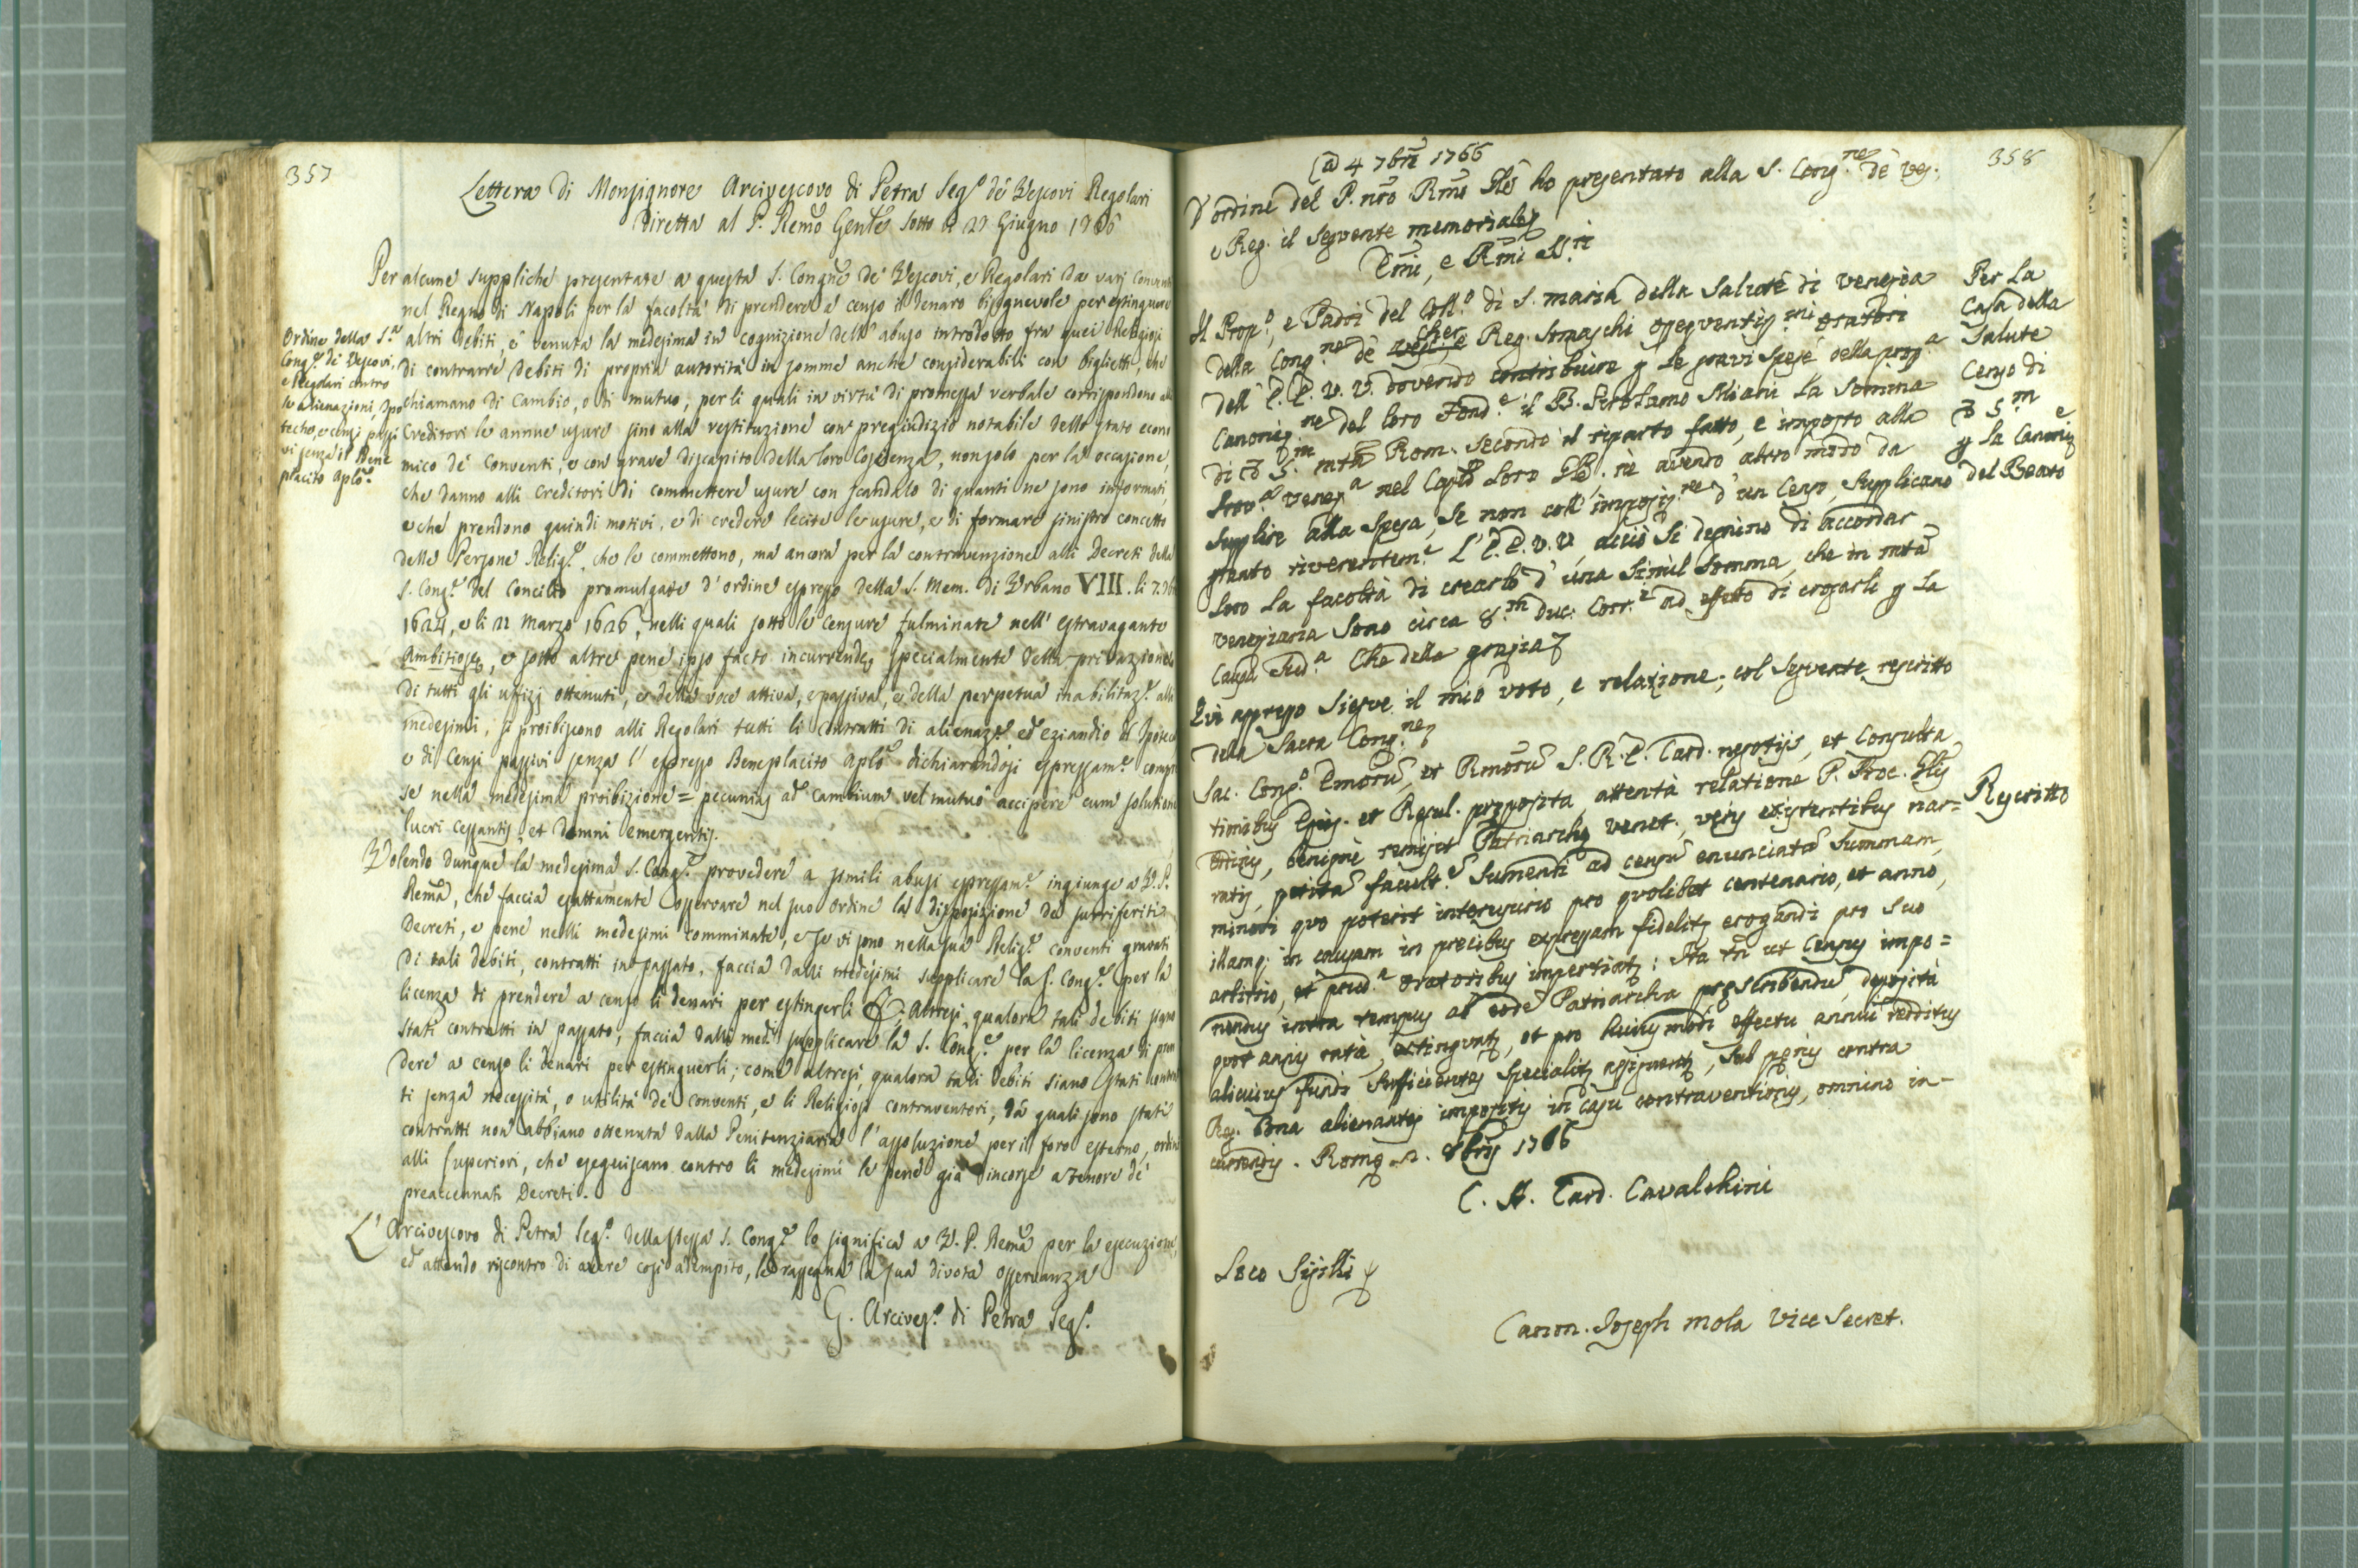 357
Lettera di Monsignore Arcivescovo di Petra Seg.º de' Vescovi Regolari
diretta al P. Remõ Genle sotto li 27 Giugno 1766
Per alcune suppliche presentate a questa S. Congñe de' Vescovi, e Regolari da varj Conventi
nel Regno di Napoli per la facoltà di prendere a censo il denaro bisognevole per estinguere
altri debiti, è venuta la medesima in cognizione dell' abuso introdotto fra quei Religiosi
di contrarre debiti di propria autorità in somme anche considerabili con biglietti, che
chiamano di Cambio, o di mutuo, per li quali in virtù di promessa verbale corrispondono alli
Creditori le annue usure sino alla restituzione con pregiudizio notabile dello stato econo
mico de' Conventi, e con grave discapito della loro Coscienza, non solo per la occasione,
che danno alli Creditori di commettere usure con scandalo di quanti ne sono informati,
e che prendono quindi motivi, e di credere lecite le usure, e di formare sinistro concetto
delle Persone Relig.e, che le commettono, ma ancora per la contravenzione alli Decreti della
S. Cong.e del Concilio promulgate d' ordine espresso della S. Mem. di Urbano VIII. li 7.
1624, e li 22 Marzo 1626, nelli quali sotto le censure fulminate nell' estravagante
Ambitiose, e sotto altre pene ipso facto incurrende, specialmente della privazione
di tutti gli uffizj ottenuti, e della voce attiva, e passiva, e della perpetua inabilitaz.e alli
medesimi, si proibiscono alli Regolari tutti li contratti di alienaz.e ed eziandio di Ipoteca
e di Censi passivi senza l' espresso Beneplacito Aplõ dichiarandosi espressam.e compre
se nella medesima proibizione = pecunias ad Cambium vel mutuõ accipere cum solutione
lucri cessantis, et damni emergentis.
Volendo dunque la medesima S. Cong.e provedere a simili abusi espressam.e ingiunge a V. P.
Remã, che faccia esattamente osservare nel suo Ordine la disposizione de' surriferiti
Decreti, e pene nelli medesimi comminate, e se vi sono nella sua Relig.e conventi gravati
di tali debiti, contratti in passato, faccia dalli medesimi supplicare la S. Cong.e per la
licenza di prendere a censo li denari per estinguerli &; Altresì, qualora tali debiti siano
stati contratti in passato, faccia dalli med.i supplicare la S. Cong.e per la licenza di pren
dere a censo li denari per estinguerli; come altresì, qualora tali debiti siano stati contrat
ti senza necessità, o utilità de' conventi, e li Religiosi contraventori, da quali sono stati
contratti non abbiano ottenuta dalla Penitenziaria l' assoluzione per il foro esterno, ordini
alli Superiori, che eseguiscano contro li medesimi le pene già incorse a tenore de'
preaccennati Decreti.
L' Arcivescovo di Petra Seg.º della stessa S. Cong.e lo significa a V. P. Remã per la esecuzione,
ed attendo riscontro di avere così adempito, le rassegna la sua divota osservanza
G. Arcives.º di Petra Seg.º
Ordine della S.a
Cong.e di Vescovi,
e Regolari contro
le alienazioni, Ipo
teche, e censi passi
vi senza il Bene
placito Aplõ.
358
(a) 4 7brẽ 1766
D'ordine del P. nrõ Rmõ Glẽ ho presentato alla S. Cong.ne de' Ves.
e Reg. il seguente memoriale
Emi, e Rmi SS.ri
Il Prop.º, e Padri del Coll.º di S. maria della Salute di venezia
della Cong.ne de' Cher. Reg. Somaschi ossequentis.mi oratori
dell' E. E. V. V. dovendo contribuire p le gravi spese della pros.a
Canoniz.ne del loro Fond.e il B. Girolamo Miani la somma
di 5.m mtã Rom. secondo il riparto fatto, e imposto alla
Prov.a Venez.a nel Caplõ loro Glẽ. nè avendo altro modo da
supplire alla spesa, se non coll' imposiz.ne d' un Censo, supplicano
pertanto riverentem.e l' E. E. V. V. acciò si degnino di accordar
loro la facoltà di crearlo d' una simil somma, che in mtã
veneziana sono circa 8.m duc. Corr.i ad effetto di erogarli p la
causa sud.a Che della grazia
Qui appresso siegue il mio voto, e relazione, col seguente rescritto
della Sacra Cong.ne
Sac. Cong.º Emorũ, et Rmorũ S. R. E. Card. negotijs, et Consulta
tionibus Epis. et Regul. preposita, attenta relatione P. Proc. Glis
Ordinis, benigne remisit Patriarchæ venet., veris existentibus nar=
ratis, petitã facult.ẽ sumendi ad censũ enunciatã summam,
minori quo poterit interusurio pro quolibet centenario, et anno,
illamq; in causam in precibus expressam fidelitẽ erogandi pro suo
arbitrio, et prud.a Oratoribus impertiat: Ita tñ ut Census impo=
nendus intra tempus ab eodẽ Patriarcha pręscribendũ, deposita
quot annis rata, extinguatẽ, et pro huiusmodi effectu annui redditus
alicuius fundi sufficientes specialitẽ assignentẽ, sub pęnis contra
Reg. Bona alienantes impositis in casu contraventionis, omnino in-
currendis. Romæ 2. 8bris 1766
C. A. Card. Cavalchini
Loco Sigilli
Canon. Joseph Mola Vice Secret.
Per la
Casa della
Salute
Censo di
5.m
p la Canoniz.e
del Beato
Rescritto